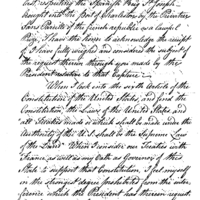 respecting the Spanish Brig St. Joseph
brought into the Port of Charleston by the Privateer
Sans Culotte of the french republic as a lawful
Prize, I have the honor to acknowledge the receipt
of I have fully weighed and considered the subject of
the request therein through you made by the
President relative to that Capture
When I look into the Article of the
Constitution of the United States, and find the
Constitution, the Laws of the United States and
all Treaties made or which shall be made under the
Authority of the U.S. shall be the Supreme Law
of the Land. When I consider our Treaties with
France, as well as my Oath as Governor of this
State to support that Constitution, I feel myself
in the strongest degree prohibited from the inter
ference which the President has therein request